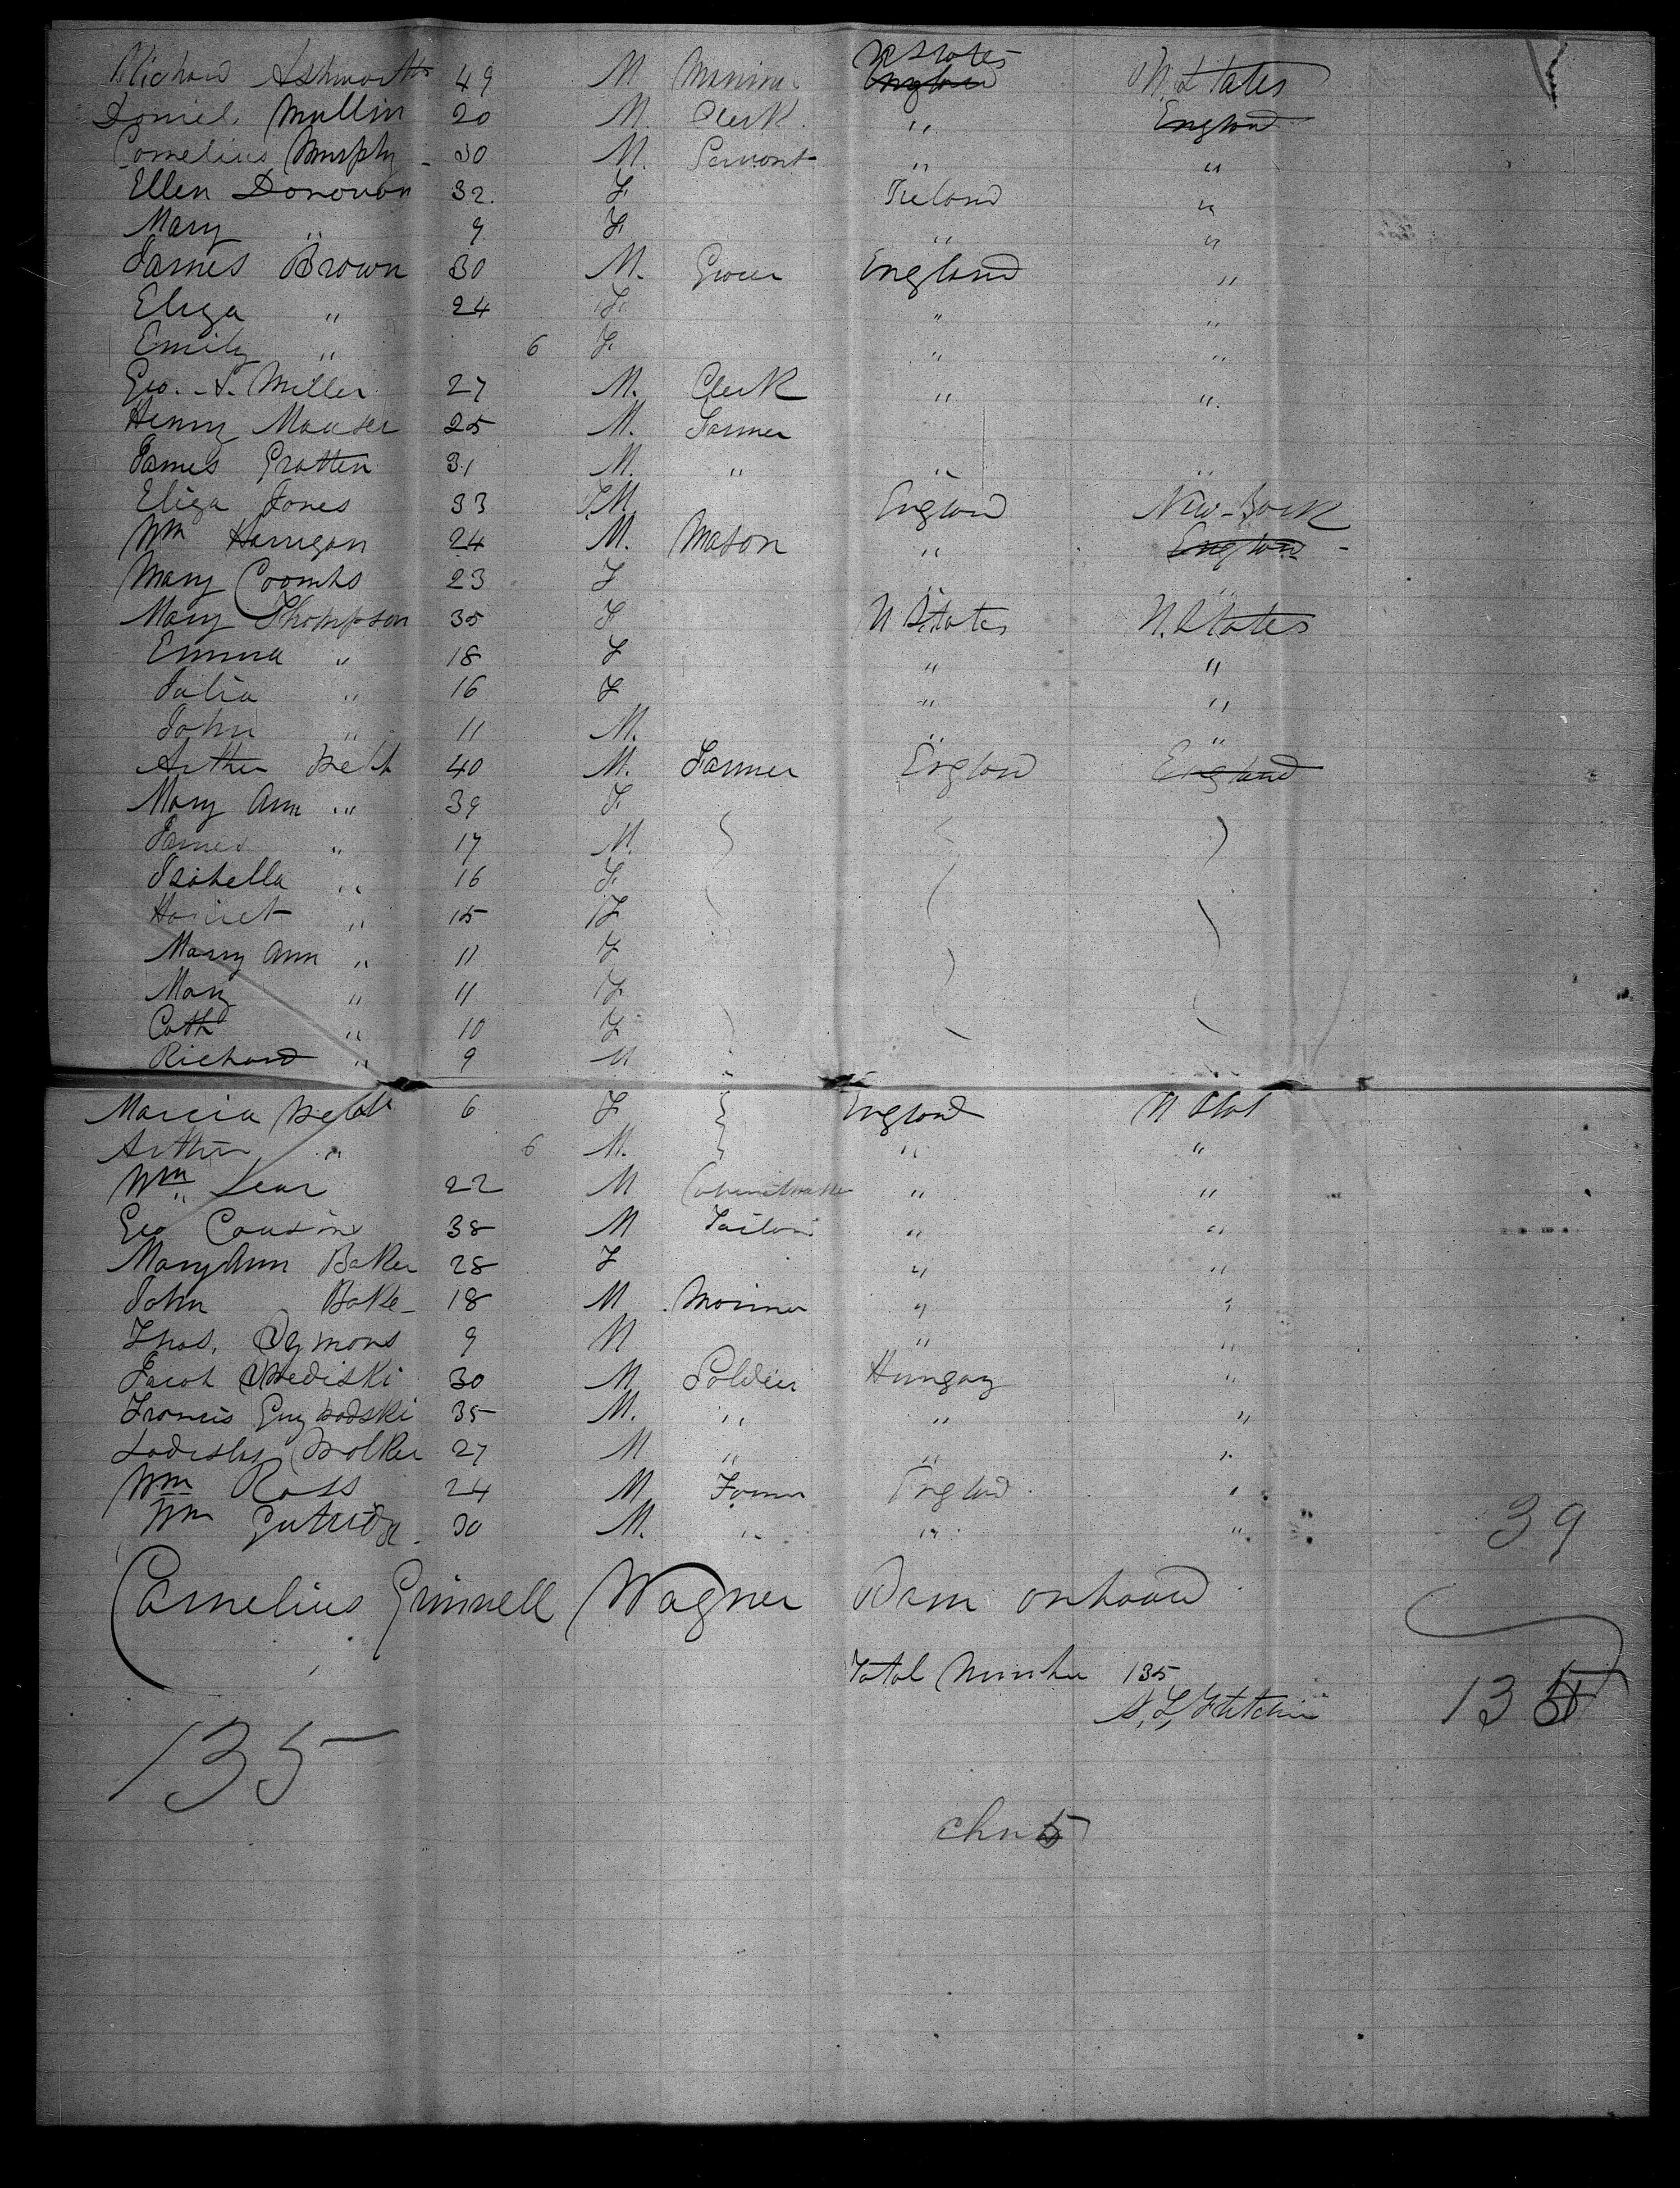 Richard Ashworth 49 M. Mariner U States England U. States
Daniel Mullin 20 M. Clerk " England
Cornelius Murphy 30 M. Servant " "
Ellen Donovan 32 F Ireland "
Mary " 9 F. " "
James Brown 30 M. Grocer England "
Eliza " 24 F. " "
Emily " 6 F. " "
Geo. S. Miller 27 M. Clerk " "
Henry Mauser 25 M. Farmer
James Gratten 31 M. " " "
Eliza Jones 33 F England New York
Wm Harrigan 24 M. Mason " England
Mary Coombs 23 F " "
Mary Thompson 35 F U States U. States
Emma " 18 F " "
Julia " 16 F " "
John " 11 M. " "
Arthur 40 M. Farmer England England
Mary Ann " 39 F.
James " 17 M.
Isabella " 16 F.
Harriet " 15 F
Mary Ann " 11 F
Mary " 11 F
Cath " 10 F
Richard " 9 M
Marcia 6 F England U Stat
Arthur " 6 M. " "
Wm Lear 22 M Cabinetmaker " "
Geo Cousins 38 M Tailor " "
Mary Ann Baker 28 F " "
John Bake 18 M Mariner " "
Thos. Symons 9 M " "
Jacob 30 M Soldier Hungary "
Francis 35 M. " " "
Ladislas 27 M " " "
Wm Ross 24 M Farmer England "
Wm Gutridge 30 M. " " "
39
Cornelius Grinnell Wagner Born onboard
Total Number 135
A. T. Fletcher
135
135